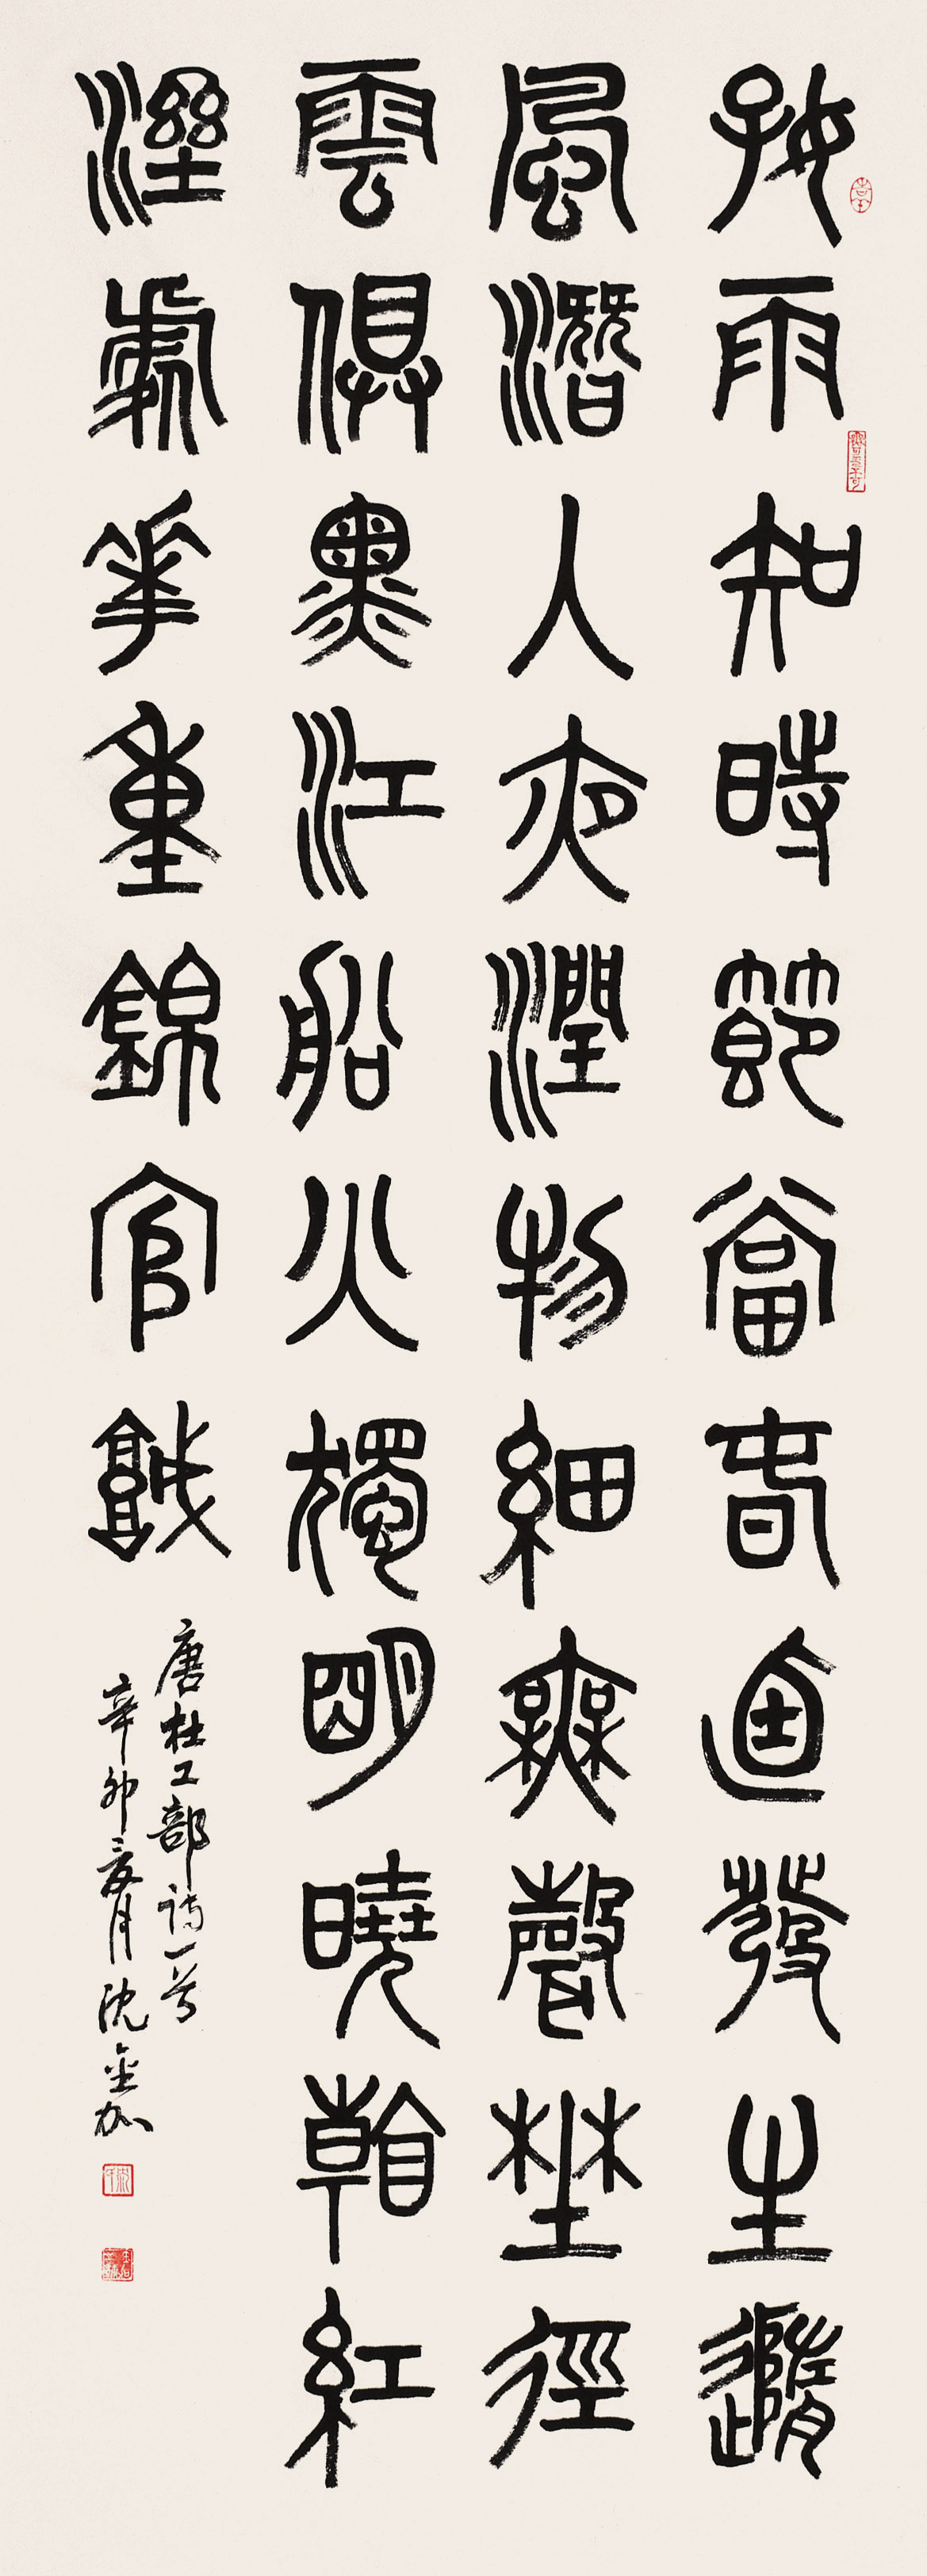 好雨知時節當春迺發生隨
風潛入夜潤物細無聲埜徑
雲俱黑江船火獨明曉看紅
溼處華重錦官城
唐杜工部詩一首
辛卯夏月沈